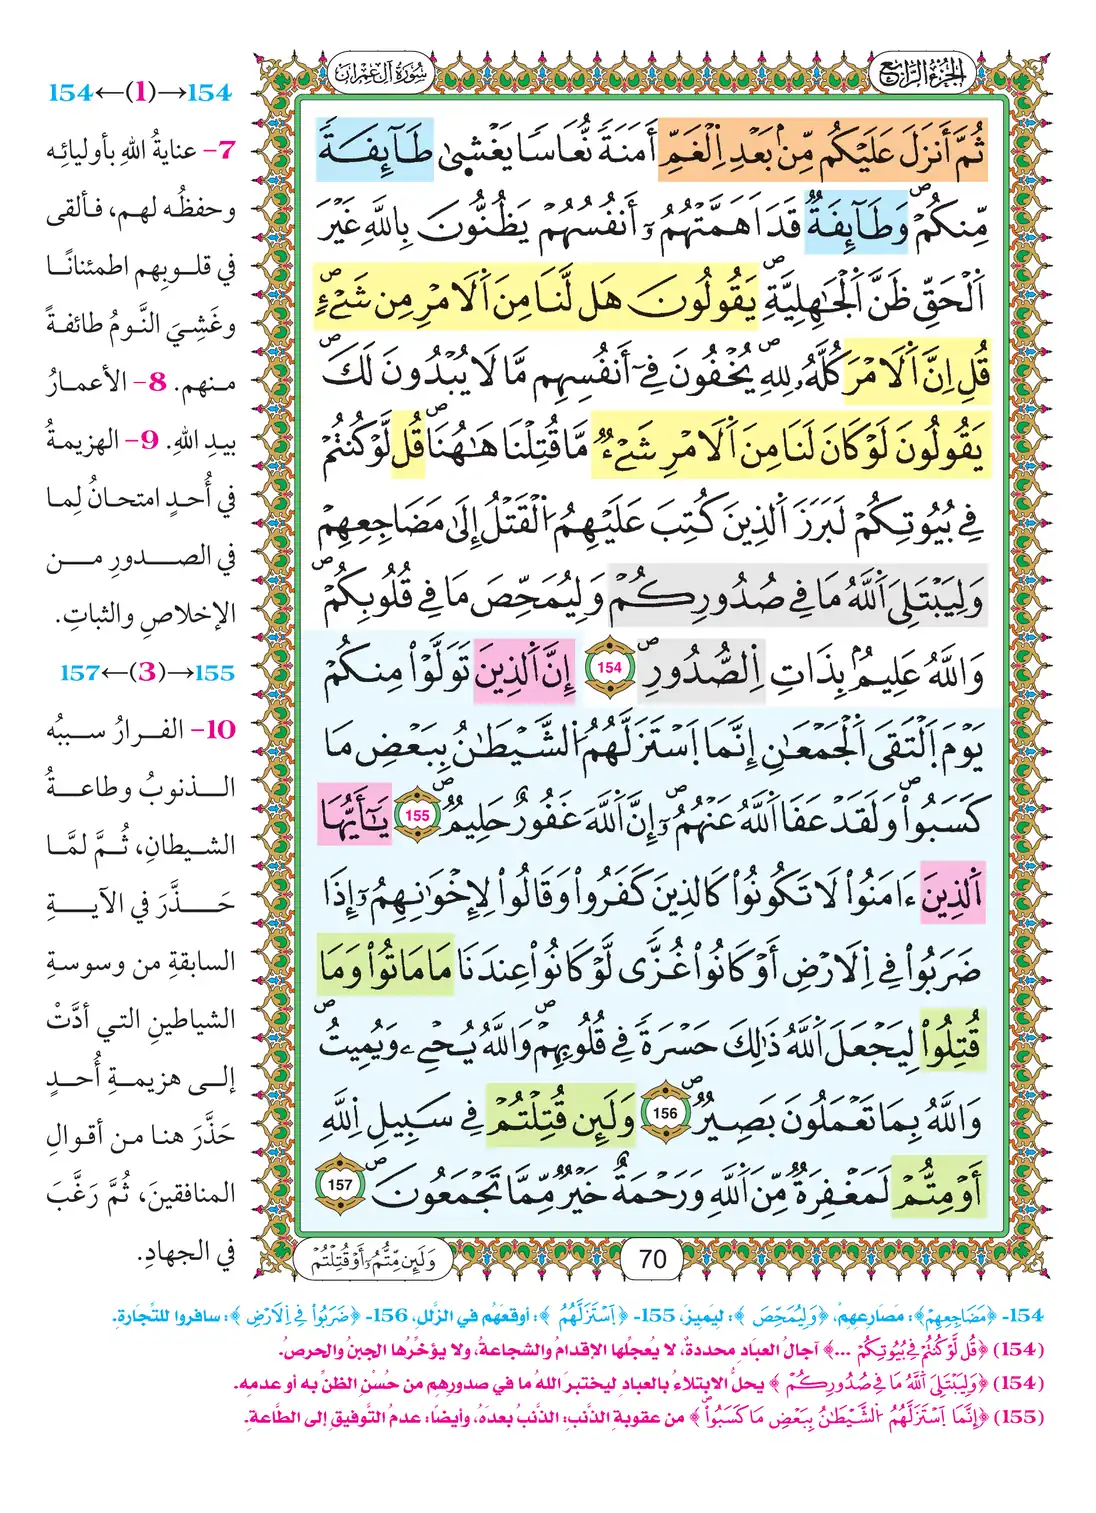 الجزء الرابع
سورة آل عمران
ثُمَّ أَنزَلَ عَلَيْكُم مِّنۢ بَعْدِ اِ۬لْغَمِّ أَمَنَةٗ نُّعَاسٗا يَغْشۭيٰ طَآئِفَةٗ
مِّنكُمْۖ وَطَآئِفَةٞ قَدَ اَهَمَّتْهُمُۥٓ أَنفُسُهُمْ يَظُنُّونَ بِاللَّهِ غَيْرَ
اَ۬لْحَقِّ ظَنَّ اَ۬لْجَٰهِلِيَّةِۖ يَقُولُونَ هَل لَّنَا مِنَ اَ۬لَامْرِ مِن شَےْءٖۖ
قُلِ اِنَّ اَ۬لَامْرَ كُلَّهُۥ لِلهِۖ يُخْفُونَ فِےٓ أَنفُسِهِم مَّا لَا يُبْدُونَ لَكَۖ
يَقُولُونَ لَوْ كَانَ لَنَا مِنَ اَ۬لَامْرِ شَےْءٞ مَّا قُتِلْنَا هَٰهُنَاۖ قُل لَّوْ كُنتُمْ
فِے بُيُوتِكُمْ لَبَرَزَ اَ۬لذِينَ كُتِبَ عَلَيْهِمُ اُ۬لْقَتْلُ إِلَىٰ مَضَاجِعِهِمْۖ
وَلِيَبْتَلِيَ اَ۬للَّهُ مَا فِے صُدُورِكُمْ وَلِيُمَحِّصَ مَا فِے قُلُوبِكُمْۖ
وَاللَّهُ عَلِيمُۢ بِذَاتِ اِ۬لصُّدُورِۖ 154 إِنَّ اَ۬لذِينَ تَوَلَّوْاْ مِنكُمْ
يَوْمَ اَ۪لْتَقَى اَ۬لْجَمْعَٰنِ إِنَّمَا اَ۪سْتَزَلَّهُمُ اُ۬لشَّيْطَٰنُ بِبَعْضِ مَا
كَسَبُواْۖ وَلَقَدْ عَفَا اَ۬للَّهُ عَنْهُمُۥٓۖ إِنَّ اَ۬للَّهَ غَفُورٌ حَلِيمٞۖ 155 يَٰٓأَيُّهَا
اَ۬لذِينَ ءَامَنُواْ لَا تَكُونُواْ كَالذِينَ كَفَرُواْ وَقَالُواْ لِإِخْوَٰنِهِمُۥٓ إِذَا
ضَرَبُواْ فِے اِ۬لَارْضِ أَوْ كَانُواْ غُزّٗى لَّوْ كَانُواْ عِندَنَا مَا مَاتُواْ وَمَا
قُتِلُواْ لِيَجْعَلَ اَ۬للَّهُ ذَٰلِكَ حَسْرَةٗ فِے قُلُوبِهِمْۖ وَاللَّهُ يُحْيِۦ وَيُمِيتُۖ
وَاللَّهُ بِمَا تَعْمَلُونَ بَصِيرٞۖ 156 وَلَئِن قُتِلْتُمْ فِے سَبِيلِ اِ۬للَّهِ
أَوْ مِتُّمْ لَمَغْفِرَةٞ مِّنَ اَ۬للَّهِ وَرَحْمَةٌ خَيْرٞ مِّمَّا تَجْمَعُونَۖ 157
70
وَلَئِن مِّتُّمُۥٓ أَوْ قُتِلْتُمْ
154←(1)→154
7- عنايةُ اللهِ بأوليائِه
وحفظُه لهم، فألقى
في قلوبِهم اطمئنانًا
وغَشِيَ النَّومُ طائفةً
منهم. 8- الأعمارُ
بيدِ اللهِ. 9- الهزيمةُ
في أُحدٍ امتحانٌ لِما
في الصدورِ من
الإخلاصِ والثباتِ.
157←(3)→155
10- الفرارُ سببُه
الذنوبُ وطاعةُ
الشيطانِ، ثُمَّ لمَّا
حَذَّرَ في الآيةِ
السابقةِ من وسوسةِ
الشياطينِ التي أدَّتْ
إلى هزيمةِ أُحدٍ
حَذَّرَ هنا من أقوالِ
المنافقينَ، ثُمَّ رَغَّبَ
في الجهادِ.
154- ﴿مَضَاجِعِهِمْ﴾: مصارعِهِمْ، ﴿وَلِيُمَحِّصَ﴾: ليميزَ، 155- ﴿اَ۪سْتَزَلَّهُمُ﴾: أوقعَهُم في الزَّللِ، 156- ﴿ضَرَبُواْ فِے اِ۬لَارْضِ﴾: سافروا للتِّجارةِ.
(154) ﴿قُل لَّوْ كُنتُمْ فِے بُيُوتِكُمْ ...﴾ آجالُ العبادِ محددةٌ، لا يُعجلُها الإقدامُ والشجاعةُ، ولا يؤخِّرُها الجبنُ والحرصُ.
(154) ﴿وَلِيَبْتَلِيَ اَ۬للَّهُ مَا فِے صُدُورِكُمْ﴾ يحلُّ الابتلاءُ بالعبادِ ليختبرَ اللهُ ما في صدورِهم من حُسْنِ الظنِّ به أو عدمِه.
(155) ﴿إِنَّمَا اَ۪سْتَزَلَّهُمُ اُ۬لشَّيْطَٰنُ بِبَعْضِ مَا كَسَبُواْۖ﴾ من عقوبةِ الذَّنبِ: الذَّنبُ بعدَهُ، وأيضًا: عدمُ التَّوفيقِ إلى الطَّاعةِ.